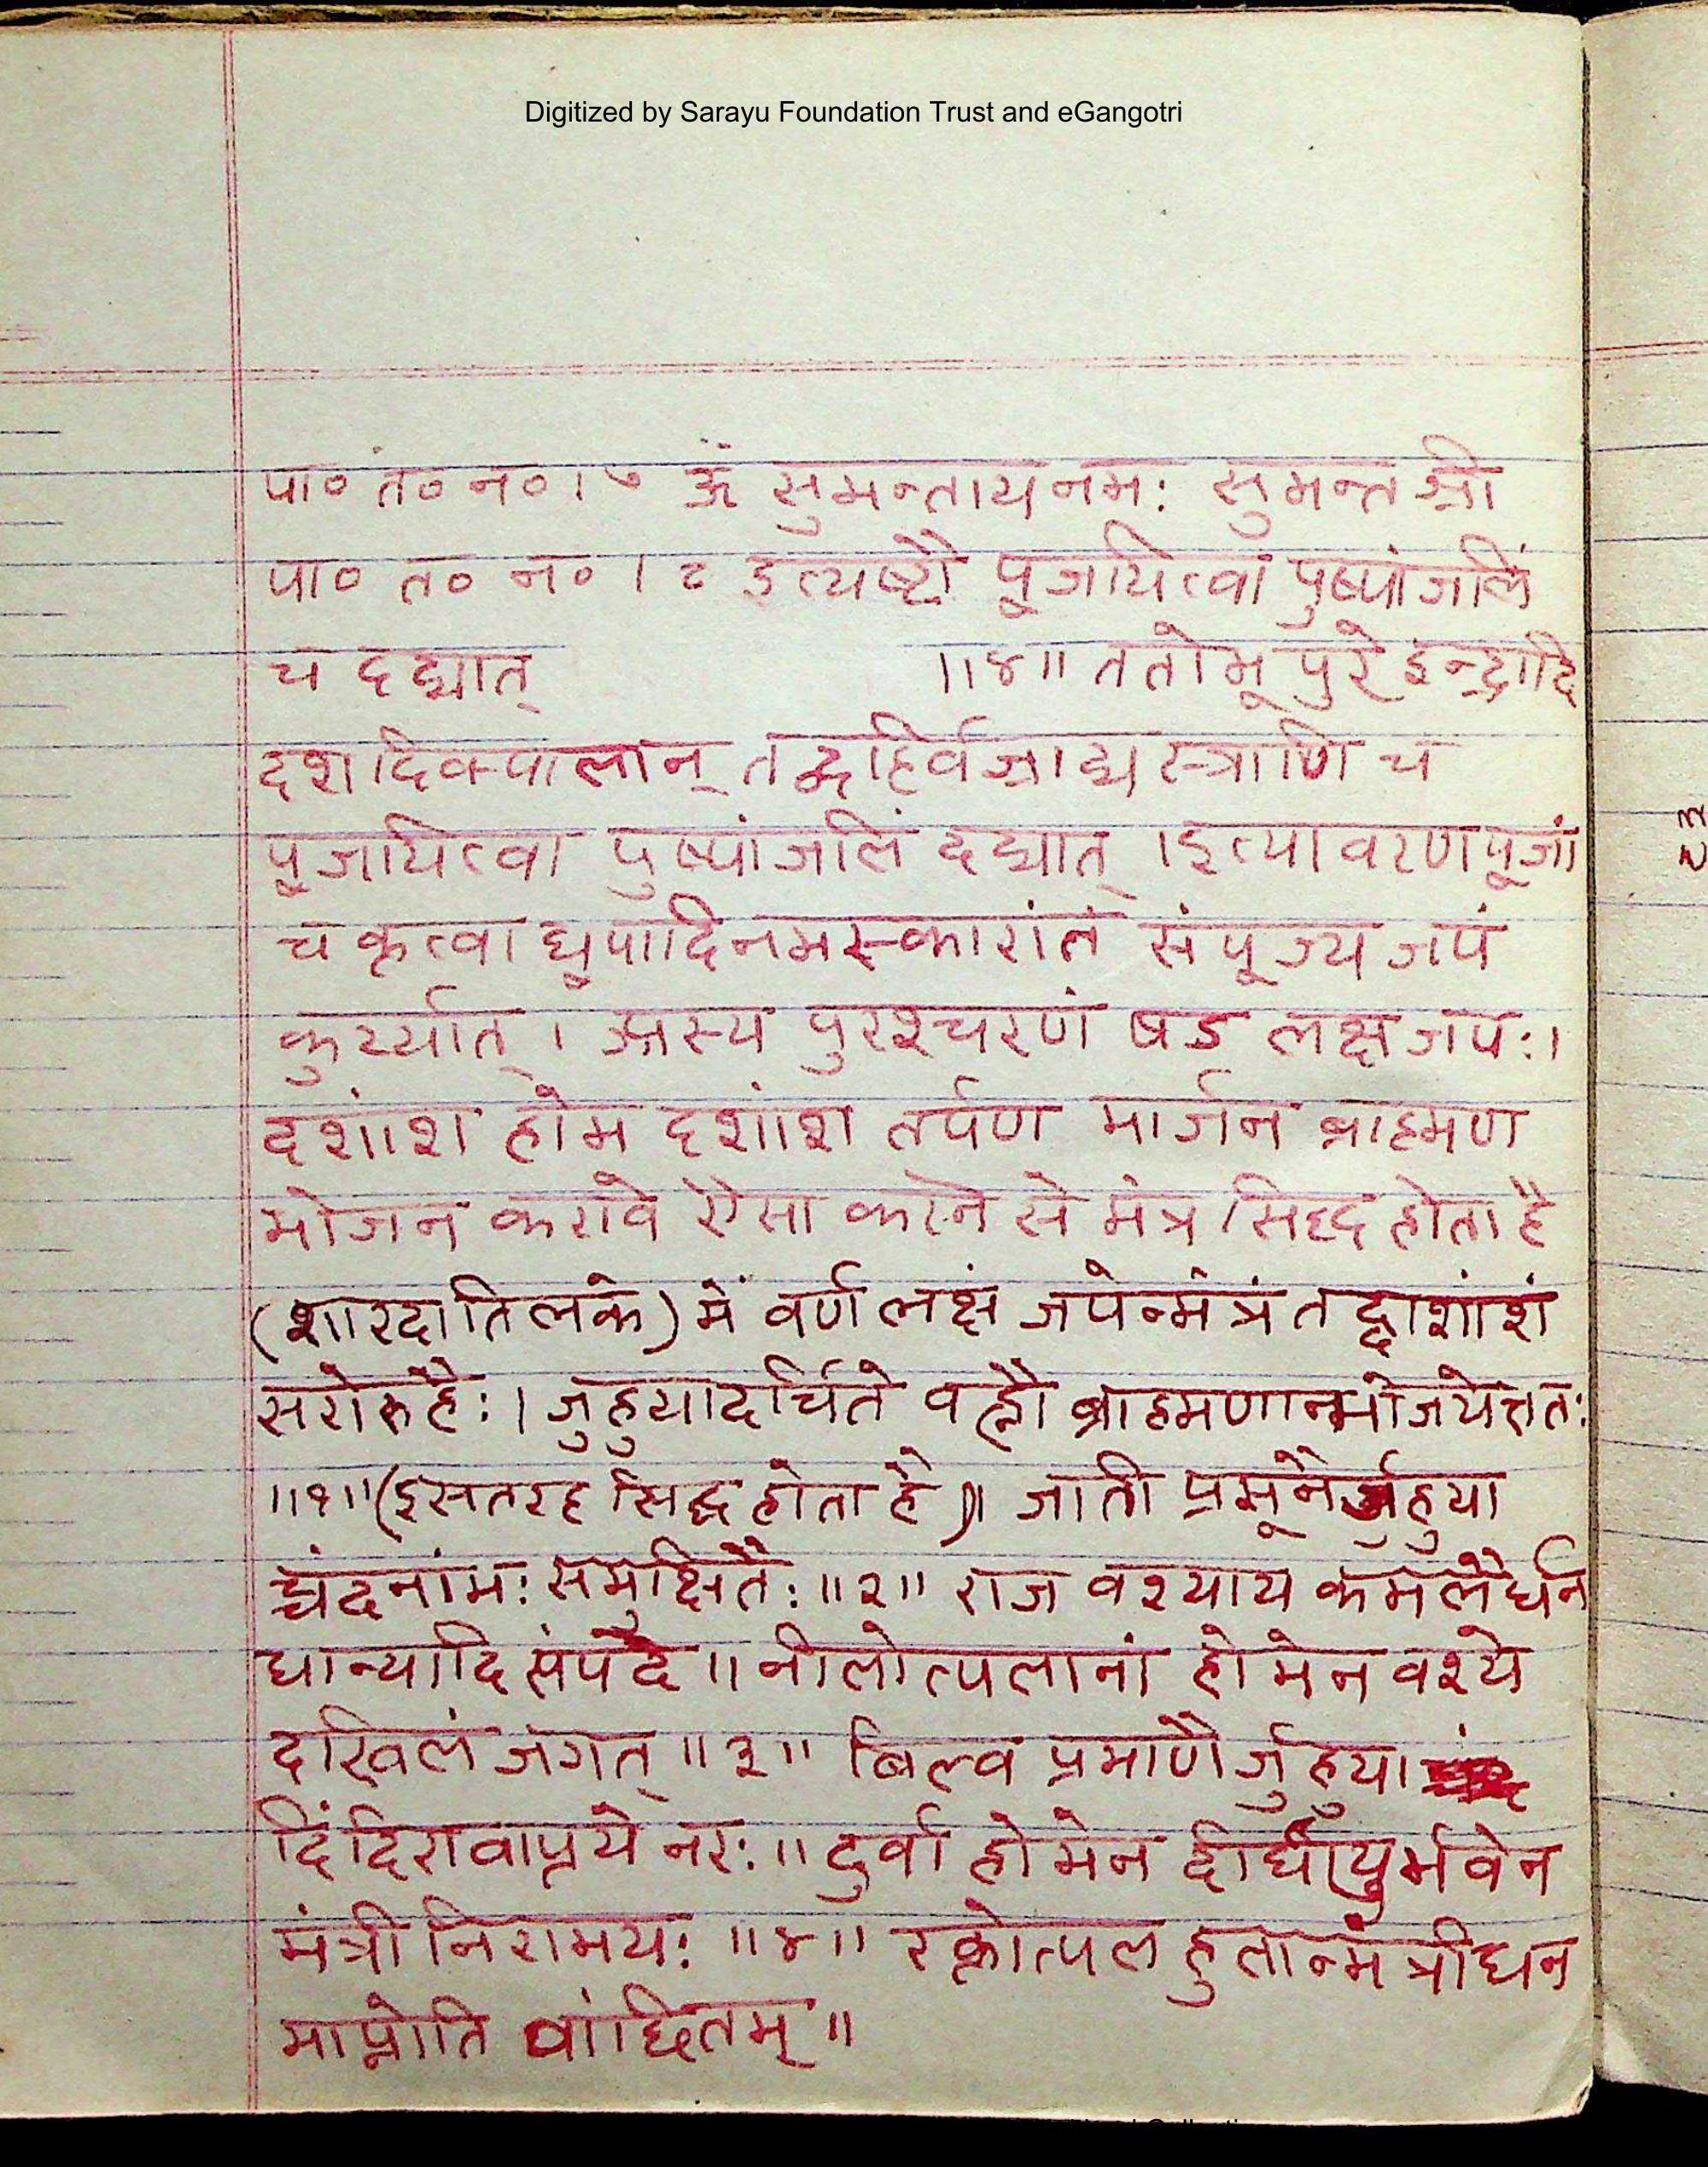 Digitized by Sarayu Foundation Trust and eGangotri
पा० तं० न० । ७ ॐ सुमन्तायनमः सुमन्त श्री
पा० त० न० । ८ इत्यष्टौ पूजयित्वा पुष्पांजलिं
च दद्यात् ॥४॥ ततोभूपुरे इन्द्रादि
दशदिक्पालान् तद्बहिर्वज्राद्यस्त्राणि च
पूजयित्वा पुष्पांजलिं दद्यात् ।इत्यावरणपूजां
च कृत्वा धूपादिनमस्कारांतं संपूज्य जपं
कुर्य्यात् । अस्य पुरश्चरणं षड लक्षजपः।
दशांश होम दशांश तर्पण मार्जन ब्राह्मण
भोजन करावे ऐसा करने से मंत्र सिद्ध होता है
(शारदातिलके) में वर्ण लक्षं जपेन्मंत्रं तद्दाशांशं
सरोरुहैः। जुहुयादर्चिते वह्नौ ब्राह्मणान्भोजयेत्ततः
॥१॥(इसतरह सिद्ध होता है)॥ जाती प्रसूनैर्जुहुया
च्चंदनांभः समुक्षितैः ॥२॥ राज वश्याय कमलैर्धन
धान्यादि संपदे ॥ नीलोत्पलानां होमेन वश्ये
दखिलं जगत् ॥३॥ बिल्व प्रमाणैर्जुहुया
दिंदिरावाप्तये नरः ॥ दुर्वा होमेन दीर्घायुर्भवेन
मंत्री निरामयः ॥४॥ रक्तोत्पल हुतान्मंत्रीधन
माप्नोति वांछितम् ॥